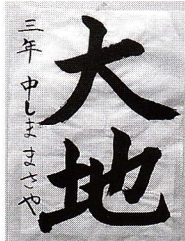 大地
三年 中しま まさや